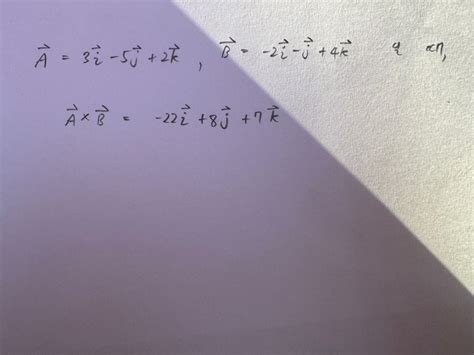 A⃗ = 3i⃗ - 5j⃗ + 2k⃗ , B⃗ = -2i⃗ - j⃗ + 4k⃗
A⃗ × B⃗ = -22i⃗ + 8j⃗ + 7k⃗